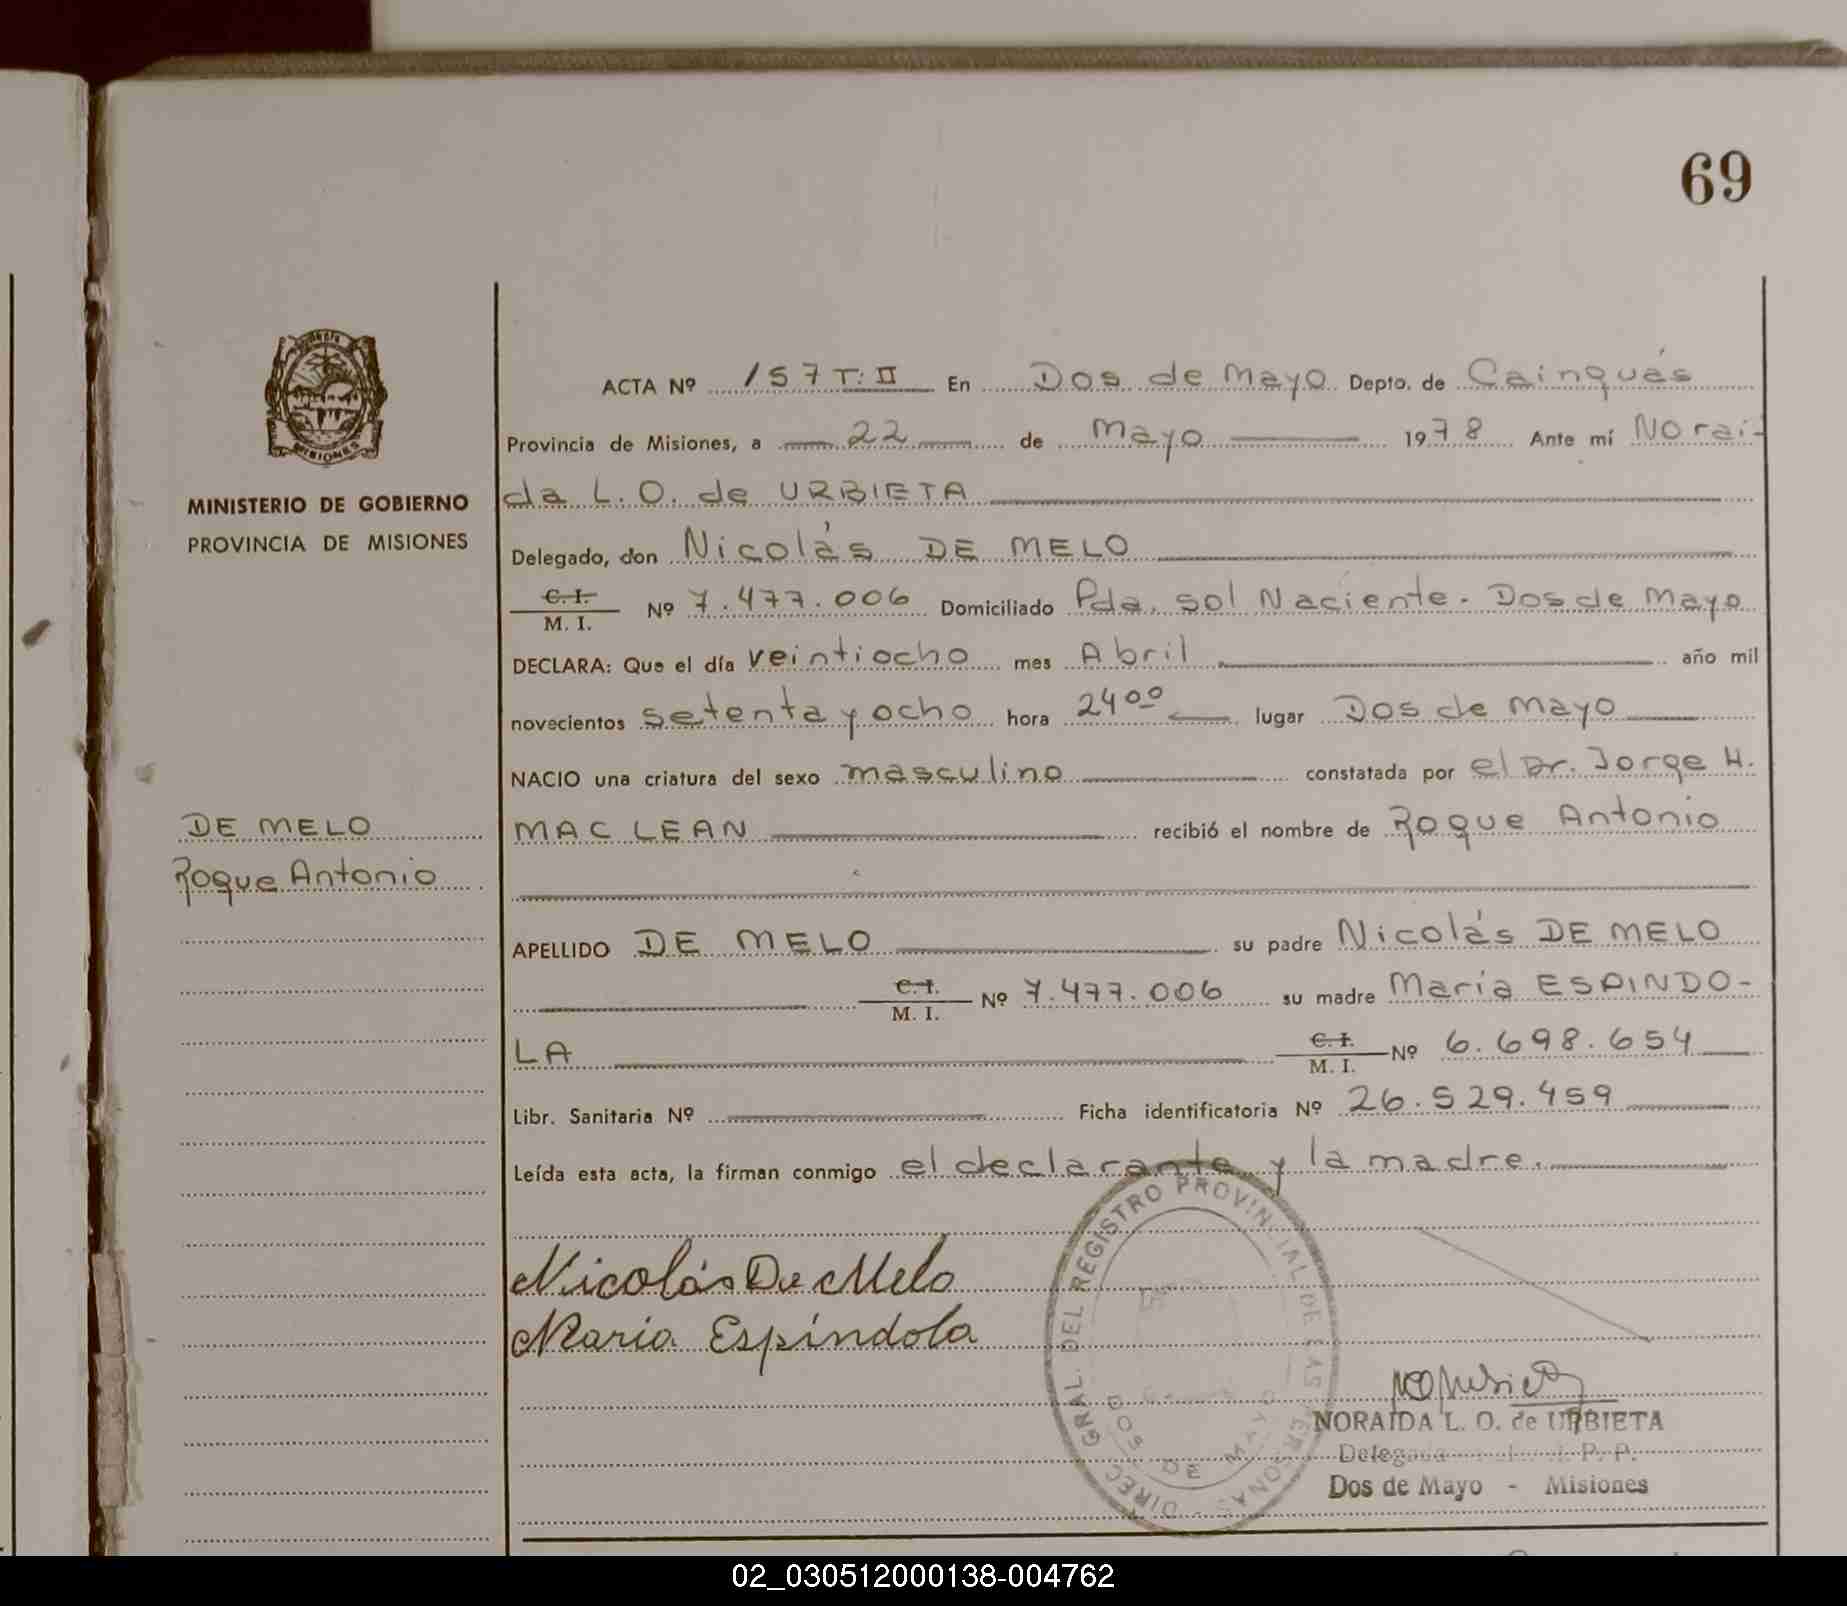 69
MISIONES
MINISTERIO DE GOBIERNO
PROVINCIA DE MISIONES
DE MELO
Roque Antonio
ACTA Nº 157 T: II En Dos de Mayo Depto. de Cainguás
Provincia de Misiones, a 22 de Mayo 1978 Ante mí Norai-
da L. O. de URBIETA
Delegado, don Nicolás DE MELO
C. I.
M. I. Nº 7.477.006 Domiciliado Pda. Sol Naciente - Dos de Mayo
DECLARA: Que el día veintiocho mes Abril año mil
novecientos setenta y ocho hora 24°° lugar Dos de Mayo
NACIO una criatura del sexo masculino constatada por el Dr. Jorge H.
MAC LEAN recibió el nombre de Roque Antonio
APELLIDO DE MELO su padre Nicolás DE MELO
C. I.
M. I. Nº 7.477.006 su madre María ESPINDO-
LA C. I.
M. I. Nº 6.698.654
Libr. Sanitaria Nº Ficha identificatoria Nº 26.529.459
Leída esta acta, la firman conmigo el declarante y la madre.
Nicolás De Melo
Maria Espíndola
DIREC GRAL. DEL REGISTRO PROVINCIAL DE LAS PERSONAS -
DOS DE MAYO
NORAIDA L. O. de URBIETA
Delegada P. P.
Dos de Mayo - Misiones
02_030512000138-004762